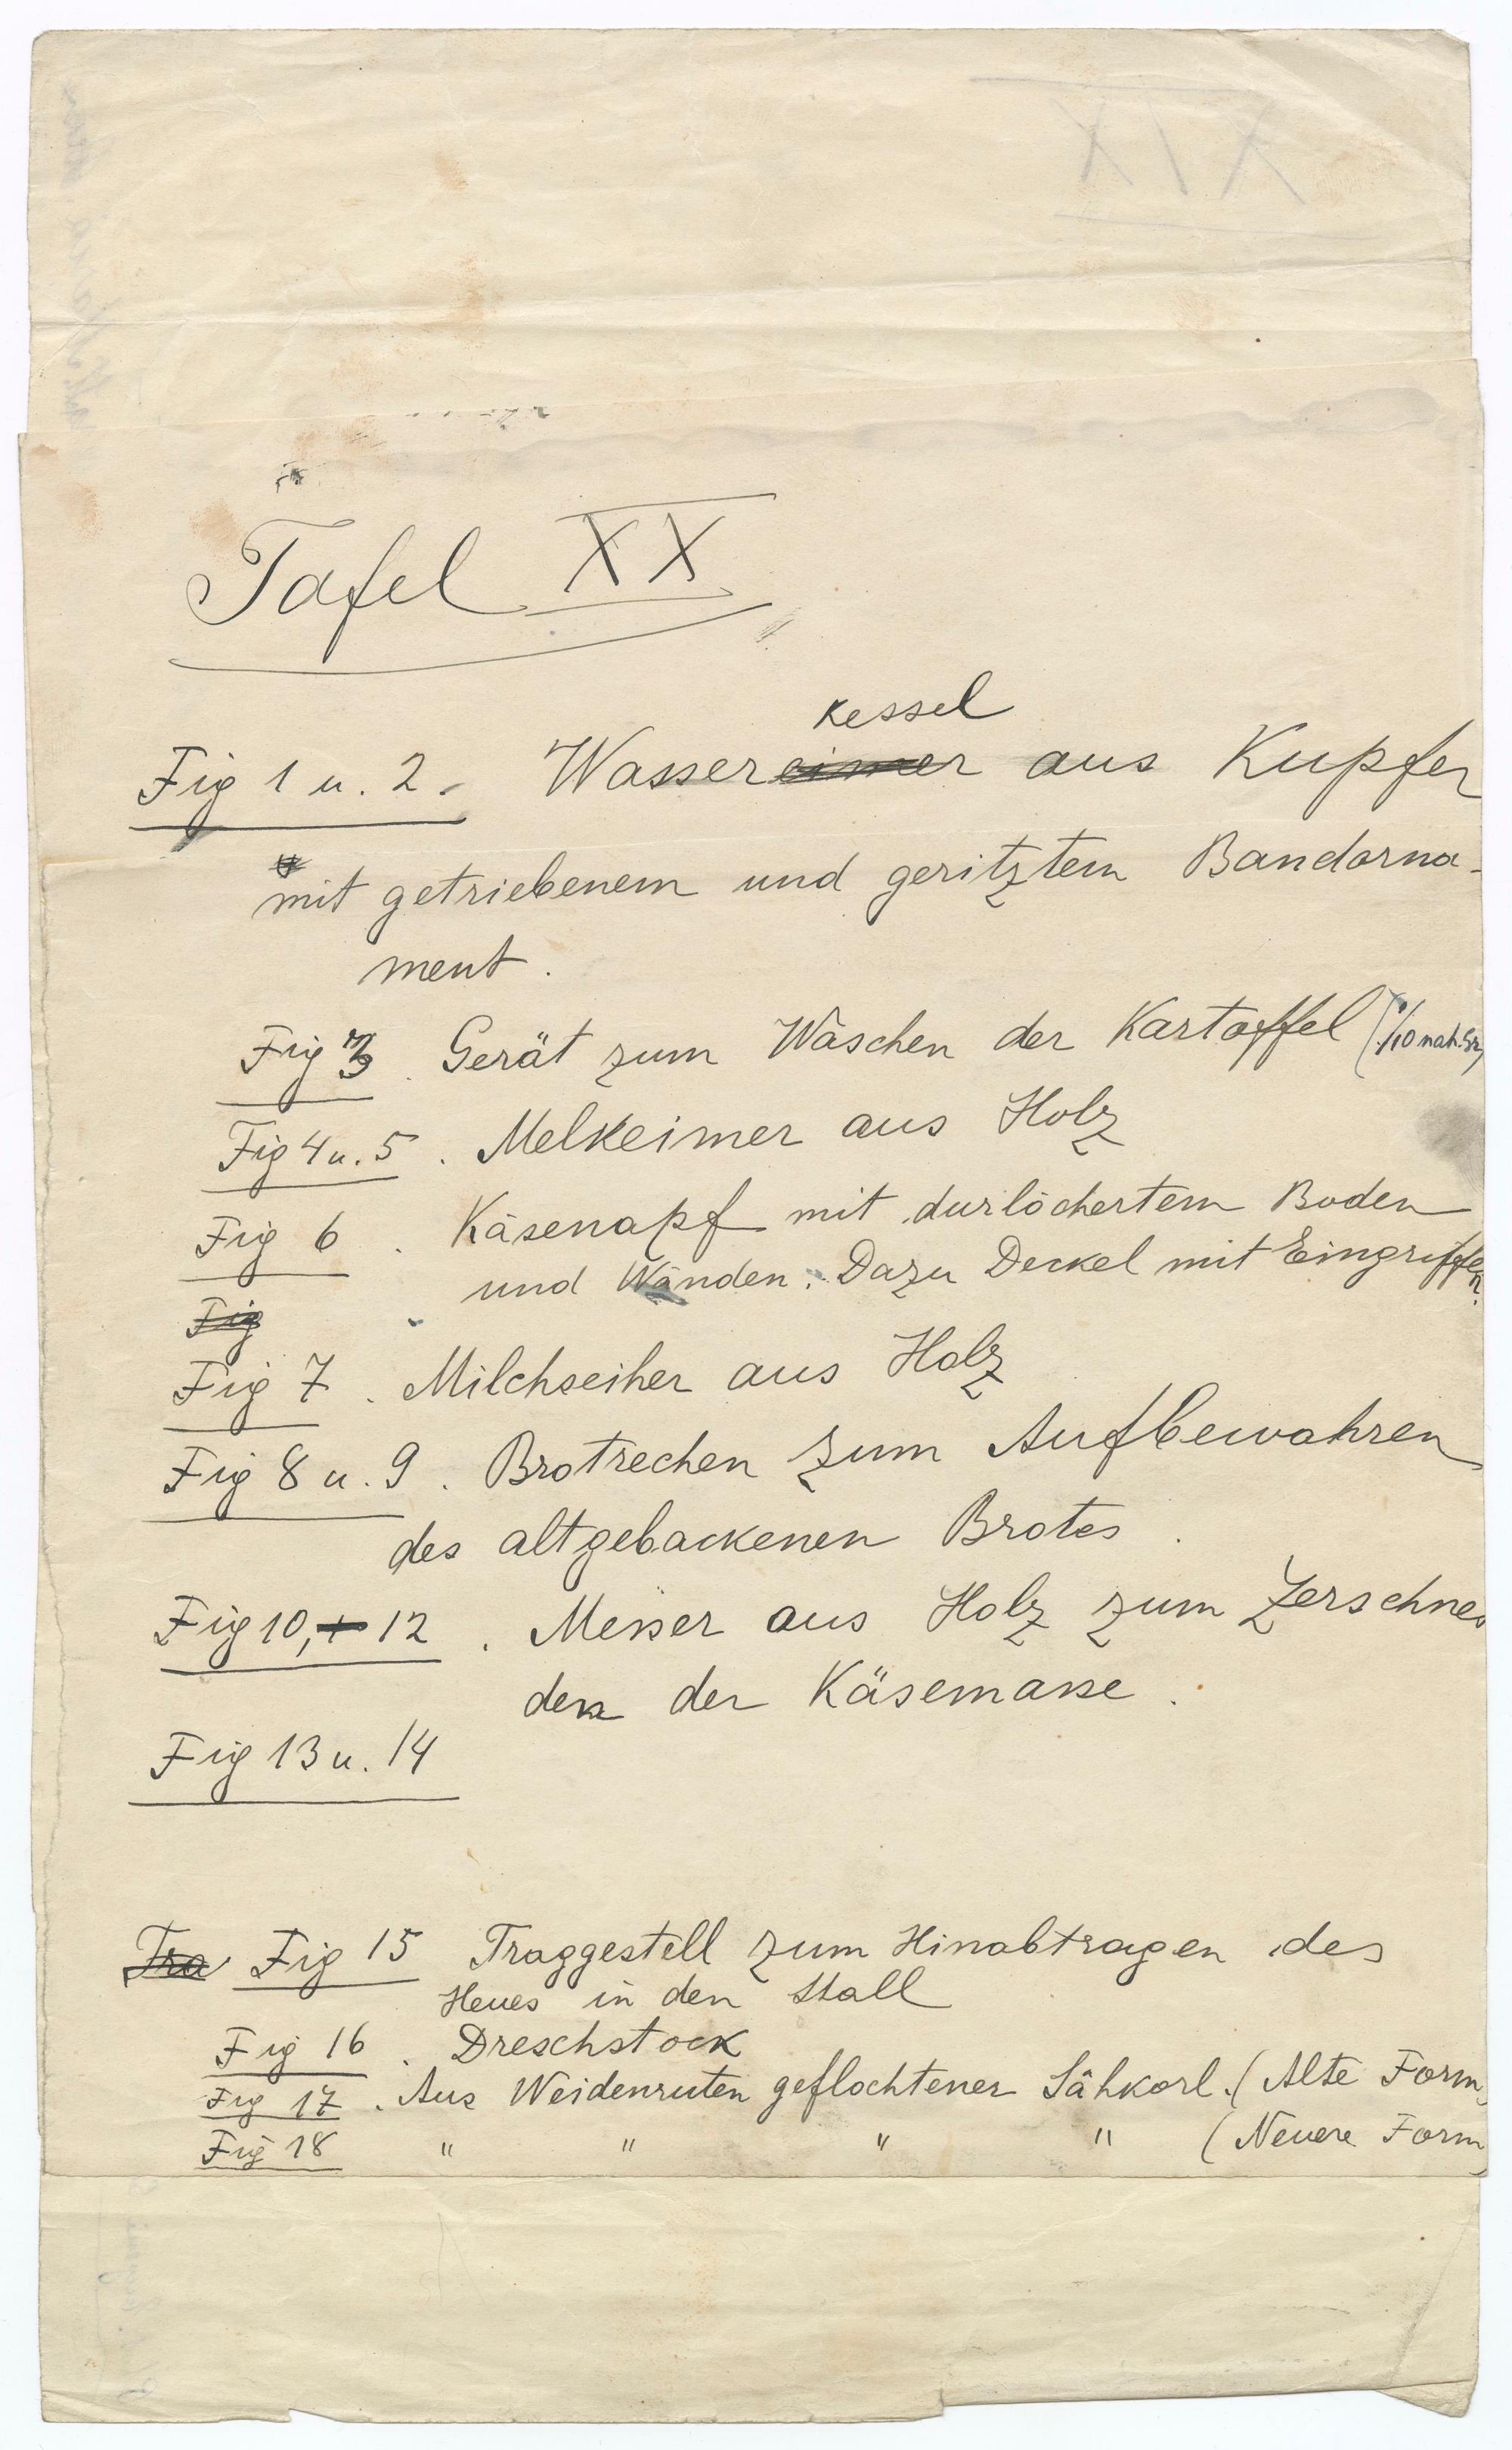 XIX
Tafel XX
kessel
Fig 1 u. 2. Wassereimer aus Kupfer
mit getriebenem und geritztem Bandorna-
ment.
Fig 3. Gerät zum Wäschen der Kartoffel (1/10 nat. Gr)
Fig 4 u. 5. Melkeimer aus Holz
Fig 6. Käsenapf mit durlöchertem Boden
und Wänden. Dazu Deckel mit Eingriffen.
Fig
Fig 7. Milchseiher aus Holz
Fig 8 u. 9. Brotrechen zum Aufbewahren
des altgebackenen Brotes.
Fig 10, + 12. Messer aus Holz zum Zerschnei
den der Käsemasse.
Fig 13 u. 14
Tra Fig 15 Traggestell zum Hinabtragen des
Heues in den Stall
Fig 16. Dreschstock
Fig 17. Aus Weidenruten geflochtener Sähkorb. (Alte Form)
Fig 18 " " " " (Neuere Form)